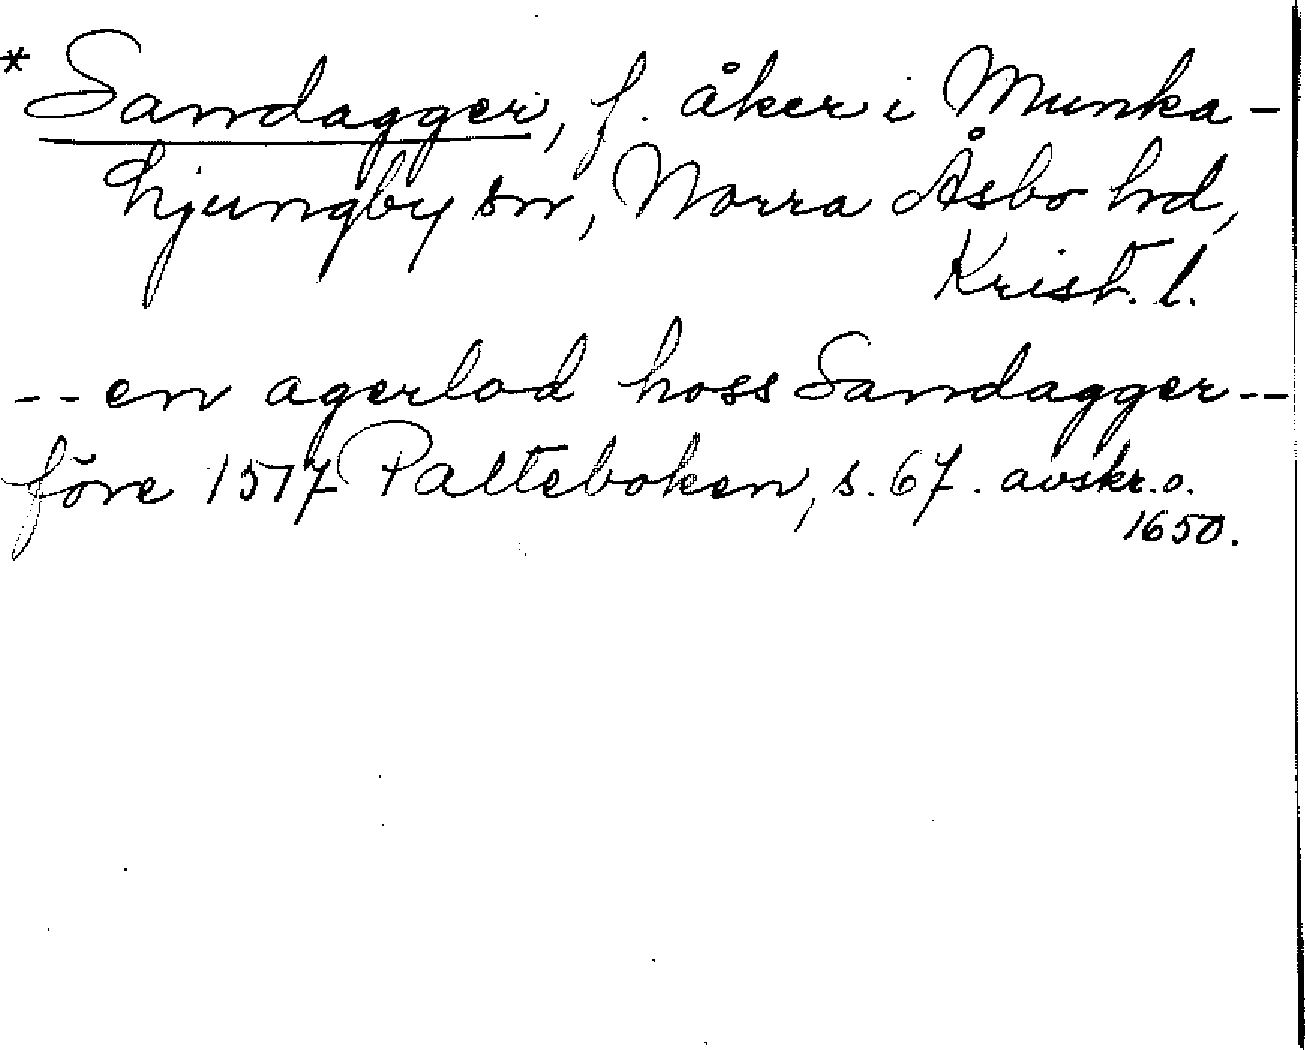 * Sandagger, f. åker i Munka-
hjungby sn, Norra Åsbo hd,
Krist. l.
-- en agerlod hoss Sandagger --
före 1517 Palteboken, s. 67. avskr. o.
1650.